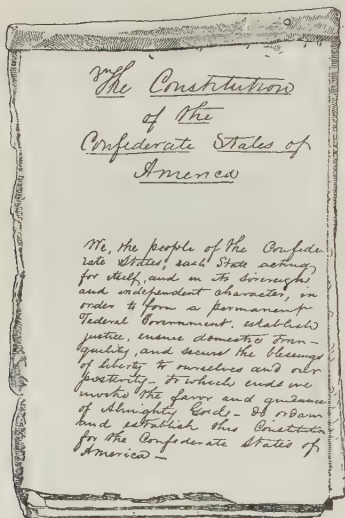 The Constitution
of the
Confederate States of
America
We, the people of the Confede
rate States, each State acting
for itself, and in its sovereign
and independent character, in
order to form a permanent
Federal Government, establish
justice, ensure domestic tran-
quility, and secure the blessings
of liberty to ourselves and our
posterity - to which ends we
invoke the favor and guidance
of Almighty God - do ordain
and establish this Constitution
for the Confederate States of
America -